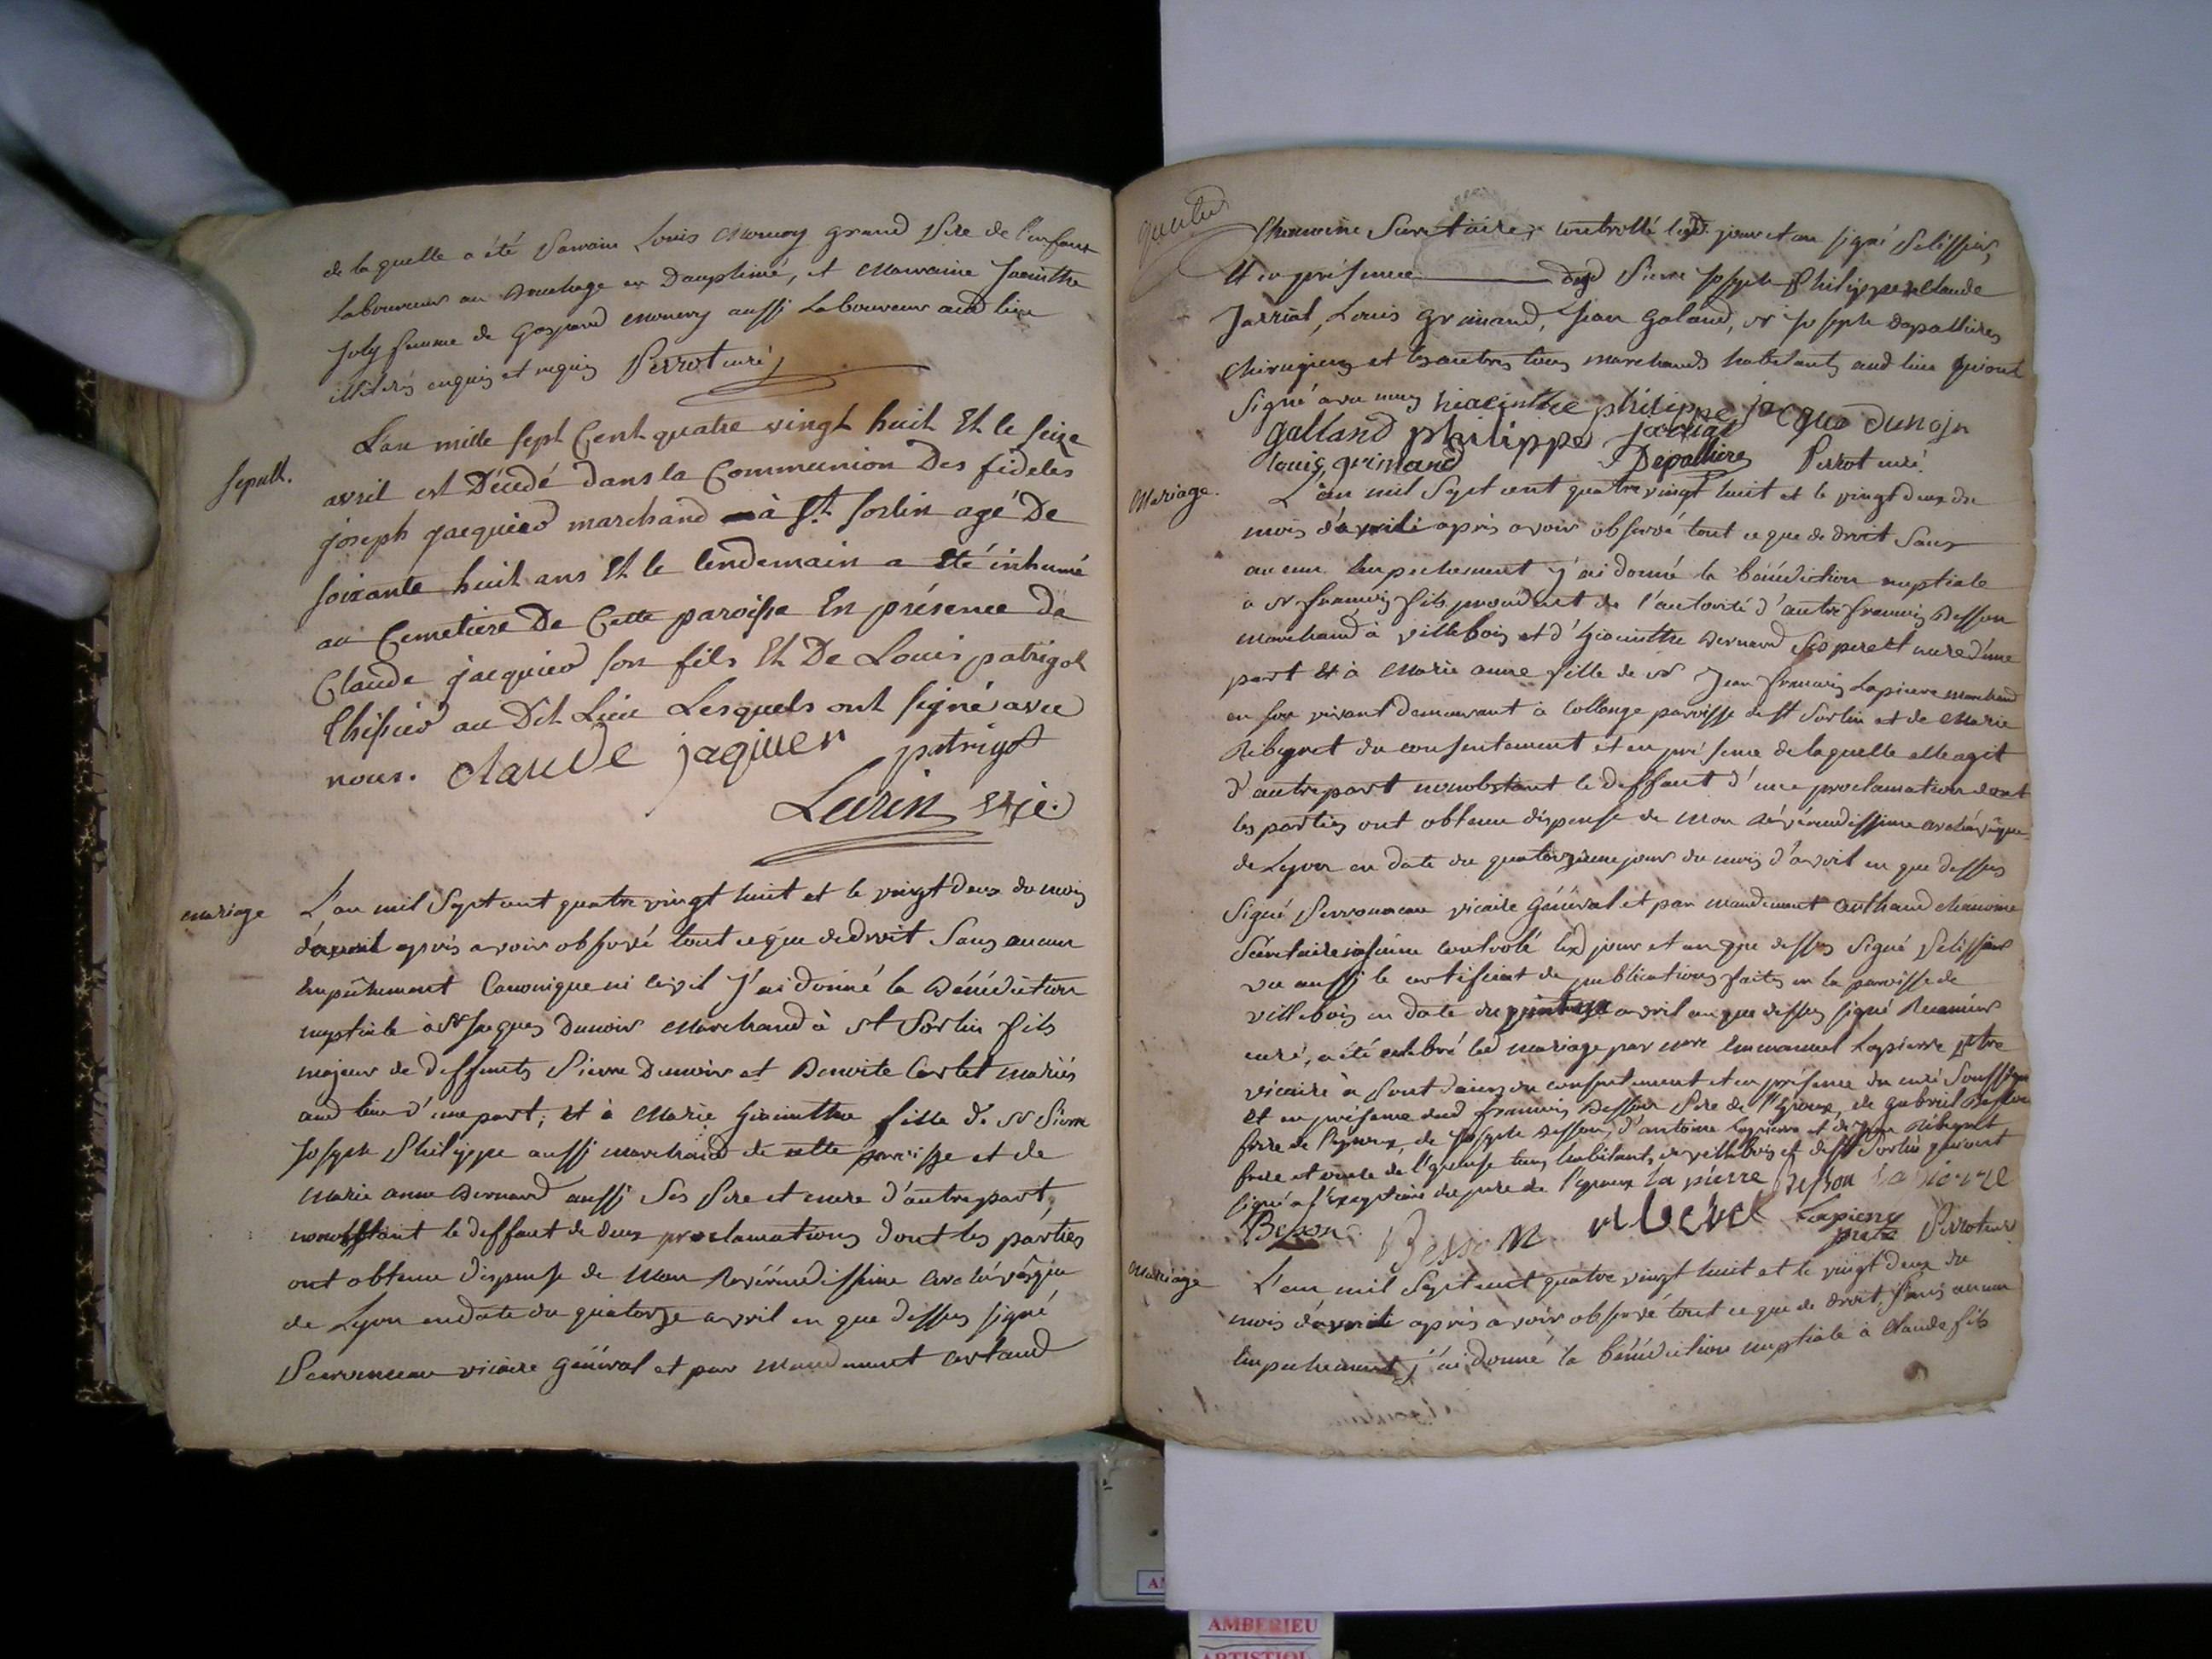 de laquelle a été Parrain Louis Monnoy grand Pere de l'enfant
Laboureur au Bouchage en Dauphiné, et Marraine Jacinthe
Joly femme de Gaspard Monnery aussi Laboureur aud lieu
illiterés enquis et requis Perrot curé
sepult.
L'an mille sept Cent quatre vingt huit Et le seize
avril est Décedé dans la Communion Des fideles
joseph jacquied marchand à St. Sorlin agé De
soixante huit ans Et le lendemain a Eté inhumé
au Cemetiere De Cette paroisse En présence de
Claude jacquied son fils Et De Louis patrigot
au Dit Lieu Lesquels ont signé avec
nous. claude jaquier patrigot
Larin vic.
mariage
L'an mil Sept cent quatre vingt huit et le vingt deux du mois
d'avril après avoir observé tout ce que de droit Sans aucun
Empêchement Canonique ni Civil J'ai donné la Bénédiction
nuptiale à Sr Jacques Dunoir Marchand à St Sorlin fils
majeur de deffunts Pierre Dunoir et Benoite Carlet mariés
aud lieu d'une part; et à Marie Giacinthe fille de Sr Pierre
Joseph Philippe aussi marchand de cette paroisse et de
Marie anne Bernard aussi Ses Pere et mere d'autre part,
nonobstant le deffaut de deux proclamations dont les parties
ont obtenu dispense de Mon Révérendissime archévêque
de Lyon en date du quatorze avril an que dessus signé
vicaire Général et par Mandement artaud
Chanoine Secrétaire controllé led. jour et an signé Pelissier,
Et en présence dud Pierre Joseph Philippe Claude
Jarriat, Louis Grimand, Jean Galand, Sr Joseph Depallieres
Chirurgien et les autres tous marchands habitants aud lieu qui ont
Signé avec nous hiacinthe philippe jacque dunoir
galland philippe jarriat
louis grimand Depalliere Perrot curé.
Mariage.
L'an mil Sept cent quatre vingt huit et le vingt deux du
mois d'avril après avoir observé tout ce que de droit Sans
aucun Empechement j'ai donné la bénédiction nuptiale
à Sr francois fils procédant de l'autorité d'autre francois Besson
marchand à villebois et d'Giacinthe Bernard Ses pere et mere d'une
part Et à Marie anne fille de Sr Jean francois Lapierre marchand
en son vivant demeurant à Collonge paroisse de St Sorlin et de Marie
du consentement et en présence de laquelle elle agit
d'autre part nonobstant le deffaut d'une proclamation dont
les parties ont obtenu dispense de Mon Révérendissime archévêque
de Lyon en date du quatorzieme jour du mois d'avril an que dessus
Signé vicaire Général et par mandement arthaud chanoine
Secrétaire controlé led jour et an que dessus Signé Pelissier
vu aussi le certificat de publications faites en la paroisse de
villebois en date du avril an que dessus signé
curé, a été celebré led mariage par Emmanuel Lapierre Ptre
vicaire à Pont Dains du consentement et en présence du curé Soussigné
et en présence dud francois Besson Pere de l'Epoux, de Gabriel Besson
frere de l'epoux, de Joseph Besson, d'antoine Lapierre et de
frere et oncle de l'epouse tous habitants de villebois et de St Sorlin qui ont
signé a l'Exception du pere de l'epoux la pierre Besson la pierre
Besson Besson Lapierre
pretre Perrot curé
Mariage
L'an mil Sept cent quatre vingt huit et le vingt deux du
mois d'avril après avoir observé tout ce que de droit, Sans aucun
Empechement j'ai donné la bénédiction nuptiale à Claude fils
AMBERIEU